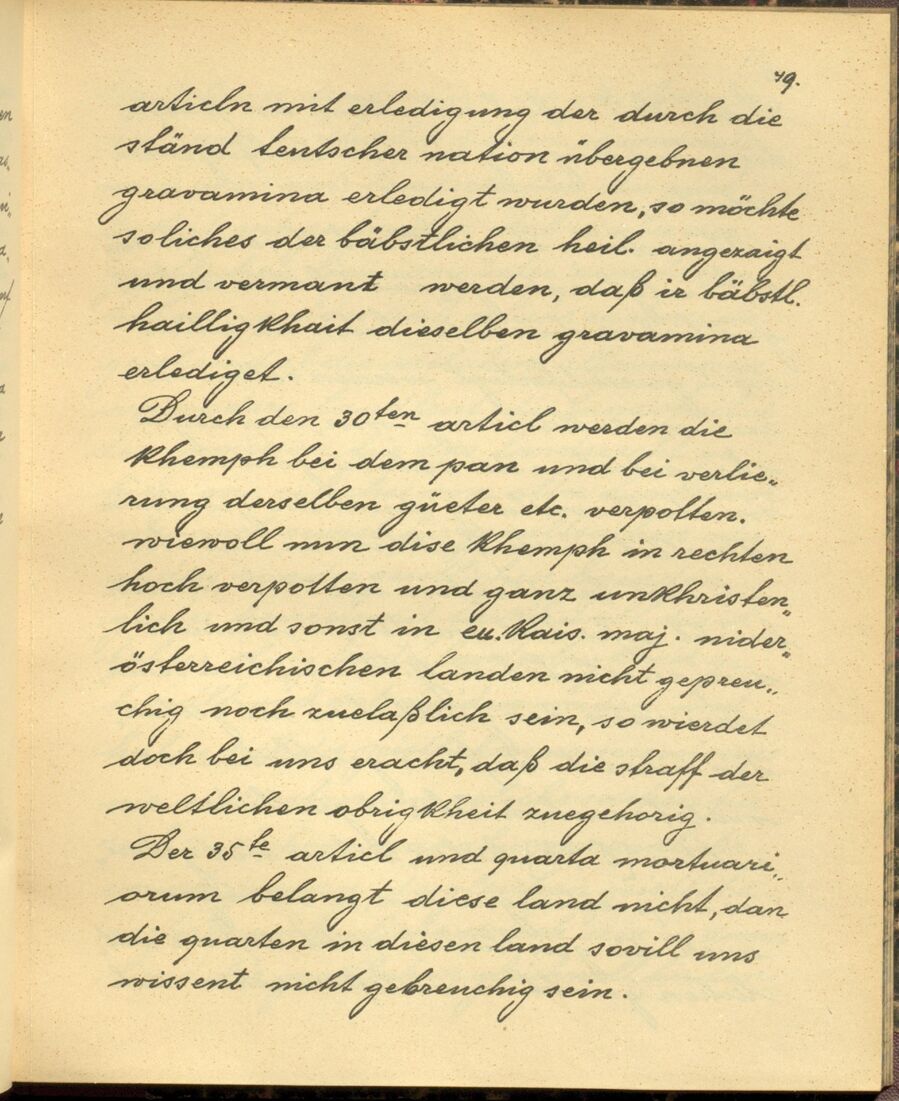 79.
articln mit erledigung der durch die
ständ teutscher nation übergebnen
gravamina erledigt wurden, so möchte
soliches der bäbstlichen heil. angezaigt
und vermant werden, daß ir bäbstl.
hailligkhait dieselben gravamina
erlediget.
Durch den 30ten articl werden die
khemph bei dem pan und bei verlie„
rung derselben güeter etc. verpotten.
wiewoll nun dise khemph in rechten
hoch verpotten und ganz unkhristen„
lich und sonst in eu. kais. maj. nider„
österreichischen landen nicht gepreu„
chig noch zuelaßlich sein, so wierdet
doch bei uns eracht, daß die straff der
weltlichen obrigkheit zuegehorig.
Der 35te articl und quarta mortuari„
orum belangt diese land nicht, dan
die quarten in diesen land sovill uns
wissent nicht gebreuchig sein.